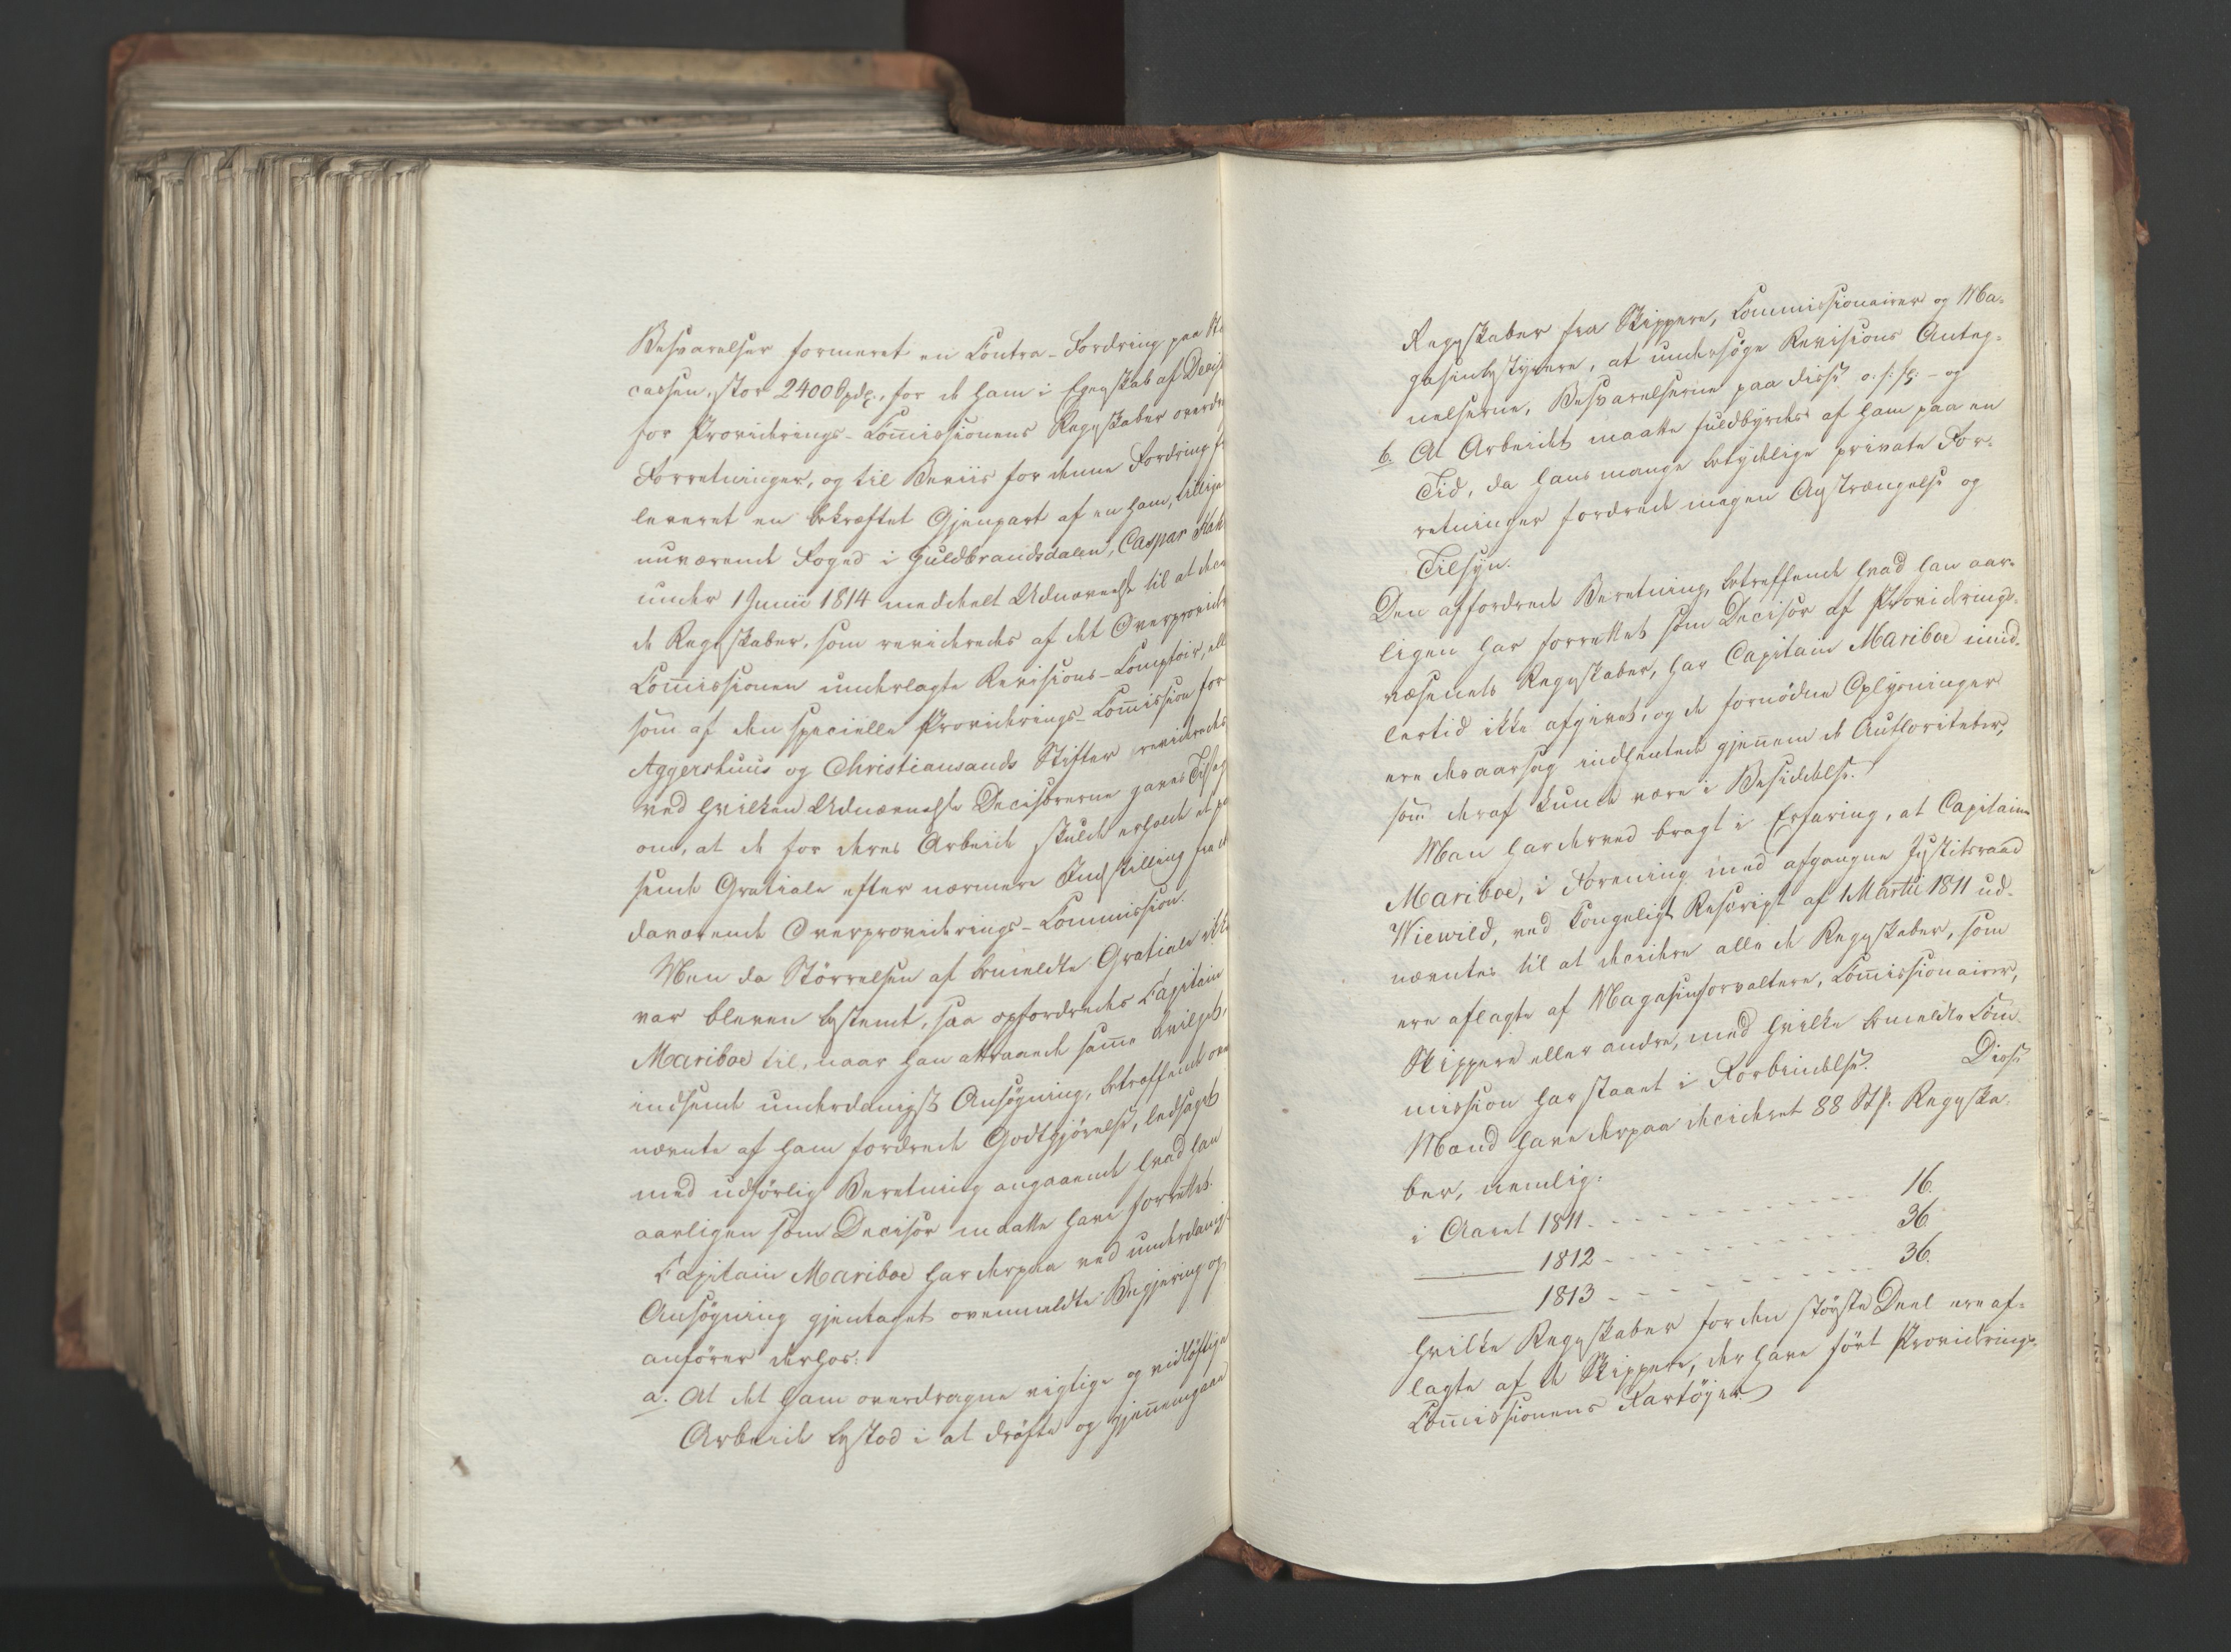 Besvarelser formeret en Contra-Fordring paa
cassen, stor 2400 Rdlr., for de ham i Egenskab af
for Providerings-Commissionens Regnskaber
Forretninger, og til Beviis for denne Fordring
leveret en bekræftet Gjenpart af en ham, tillige
nuværende Foged i Guldbrandsdalen, Caspar
under 1 Junii 1814 meddeelt Udnævnelse til at
de Regnskaber, som revideredes af det
Commissionen underlagte Revisions-Comptoir,
som af den specielle Providerings-Commission for
Aggershuus og Christiansands Stifter revideredes
ved hvilken Udnævnelse Decisorerne gaves
om, at de for deres Arbeide skulde erholde et
sende Gratiale efter nærmere Indstilling fra
daværende Overproviderings-Commission.
Men da Størrelsen af bemeldte Gratiale ikke
var bleven bestemt, saa opfordredes Capitain
Mariboe til, naar han attraaede samme bevilget,
indsende underdanigst Ansøgning, betræffende
nævnte af ham fordrede Godtgjørelse, ledsaget
med udførlig Beretning angaaende hvad han
aarligen som Decisor maatte have forrettet.
Capitain Mariboe har derpaa ved underdanigst
Ansøgning gjentaget ovenmeldte Begjering og
anfører derhos:
a. At det ham overdragne vigtige og vidløftige
Arbeide bestod i at drøfte og gjennemgaae
Regnskaber fra Skippere, Commissionairer og Ma-
gasinbestyrere, at undersøge Revisions Anteg-
nelserne, Besvarelserne paa disse o: s: fr: - og
b. At Arbeidet maatte fuldbyrdes af ham paa en
Tid, da hans mange betydelige private For-
retninger fordrede megen Anstrængelse og
Tilsyn.
Den affordrede Beretning, betreffende hvad han aar-
ligen har forrettet som Decisor af Providerings-
væsenets Regnskaber, har Capitain Mariboe imid-
lertid ikke afgivet, og de fornødne Oplysninger
ere desaarsag indhentede gjennem de Authoriteter,
som deraf kunde være i Besiddelse.
Man har derved bragt i Erfaring, at Capitain
Mariboe, i Forening med afgangne Justitsraad
Wiewild, ved Kongeligt Rescript af 1 Martii 1811 ud-
nævntes til at decidere alle de Regnskaber, som
ere aflagte af Magasinforvaltere, Commissionairer,
Skippere eller andre, med hvilke bemeldte Com-
mission har staaet i Forbindelse. Disse
Mænd have derpaa decideret 88 Stk. Regnska-
ber, nemlig:
i Aaret 1811 - - - - - - - - 16.
——— 1812 - - - - - - - - 36
——— 1813 - - - - - - - - 36.
hvilke Regnskaber for den største Deel ere af-
lagte af de Skippere, der have ført Providerings-
Commissionens Fartøjer.